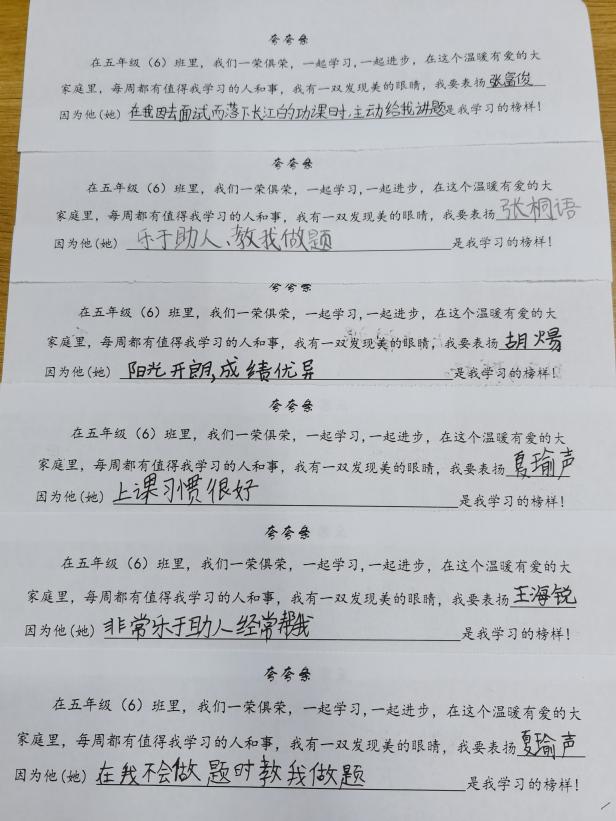 夸夸条
在五年级（6）班里，我们一荣俱荣，一起学习，一起进步，在这个温暖有爱的大
家庭里，每周都有值得我学习的人和事，我有一双发现美的眼睛，我要表扬张富俊
因为他(她) 在我因去面试而落下长江的功课时，主动给我讲题是我学习的榜样！
夸夸条
在五年级（6）班里，我们一荣俱荣，一起学习，一起进步，在这个温暖有爱的大
家庭里，每周都有值得我学习的人和事，我有一双发现美的眼睛，我要表扬张桐语
因为他(她) 乐于助人、教我做题是我学习的榜样！
夸夸条
在五年级（6）班里，我们一荣俱荣，一起学习，一起进步，在这个温暖有爱的大
家庭里，每周都有值得我学习的人和事，我有一双发现美的眼睛，我要表扬胡炀
因为他(她) 阳光开朗，成绩优异是我学习的榜样！
夸夸条
在五年级（6）班里，我们一荣俱荣，一起学习，一起进步，在这个温暖有爱的大
家庭里，每周都有值得我学习的人和事，我有一双发现美的眼睛，我要表扬夏瑜声
因为他(她) 上课习惯很好是我学习的榜样！
夸夸条
在五年级（6）班里，我们一荣俱荣，一起学习，一起进步，在这个温暖有爱的大
家庭里，每周都有值得我学习的人和事，我有一双发现美的眼睛，我要表扬王海锐
因为他(她) 非常乐于助人经常帮我是我学习的榜样！
夸夸条
在五年级（6）班里，我们一荣俱荣，一起学习，一起进步，在这个温暖有爱的大
家庭里，每周都有值得我学习的人和事，我有一双发现美的眼睛，我要表扬夏瑜声
因为他(她) 在我不会做题时教我做题是我学习的榜样！